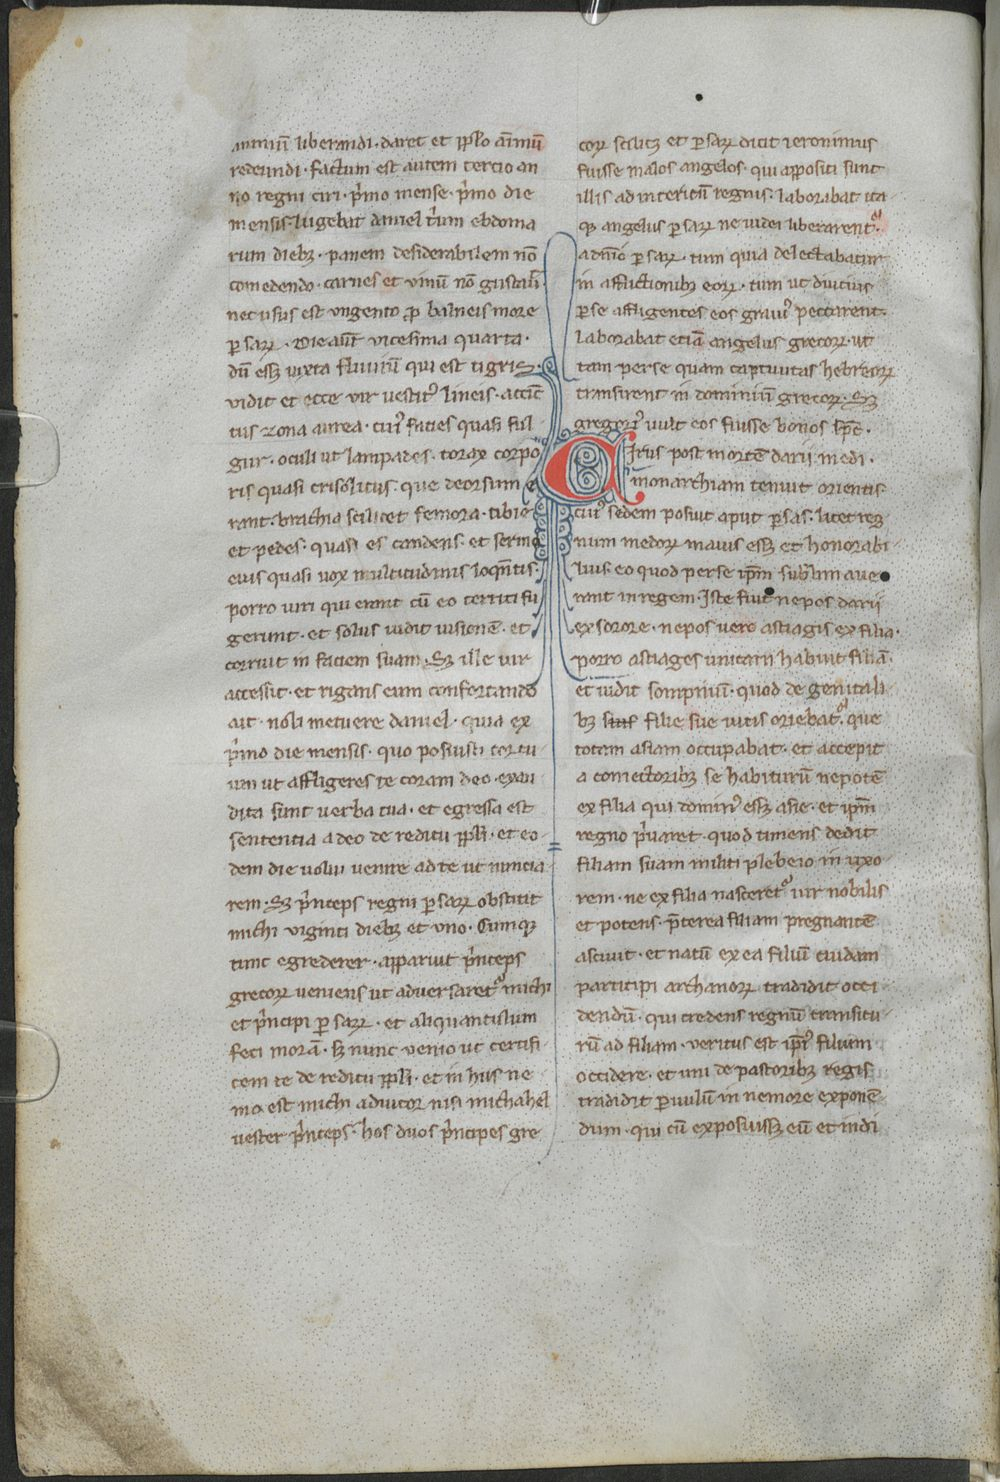 animū liberandi · daret et pplo animū
redeundi · Factum est autem tercio an
no regni ciri · p̾mo mense · p̾mo die
mensis · lugebat daniel t̾um ebdoma
rum dieb; · panem desiderabilem nō
comedendo · carnes et vinū nō gustās ·
nec usus est ungento p̱ balneis more
ꝑsaꝝ · Die aut̄ vicesima quarta ·
dū ess; iuxta fluuiū qui est tigris ·
vidit et ecce vir uestit᷒ lineis · accīc
tus zona aurea · cui᷒ facies quasi ful
gur · oculi ut lampades · torax corpo
ris quasi crisolitus · que deorsum e
rant · brachia scilicet femora · tibie
et pedes · quasi es candens · et sermo
eius quasi uox multitudinis loqn̄tis ·
porro uiri qui erant cū eo territi fu
gerunt · et solus uidit uisionē · et
corruit in faciem suam · S; ille uir
accessit · et rigans eum confortando
ait · noli metuere daniel · quia ex
p̾mo die mensis · quo posuisti cor tu
um ut affligeres te coram deo · exau
dita sunt uerba tua · et egressa est
sententia a deo de reditu ppli · et eo
dem die uolui uenire ad te ut nuncia
rem · S; p̾nceps regni ꝑsaꝝ obstitit
michi viginti dieb; et uno · Cumq;
tunc egrederer · apparuit p̾nceps
grecoꝝ ueniens ut aduersaret᷑ michi
et p̾ncipi ꝑsaꝝ · et aliquantulum
feci morā · s; nunc uenio ut certifi
cem te de reditu ppli · et in hiis ne
mo est michi adiutor nisi michahel
uester p̾nceps · hos duos p̾ncipes gre
coꝝ scilic; et ꝑsaꝝ dicit ieronimus
fuisse malos angelos · qui appositi sunt
illis ad interitū regnis · laborabat ita
q; angelus ꝑsaꝝ ne iudei liberarent᷑
a dn̄io ꝑsaꝝ · tum quia delectabatur
in afflictionib; eoꝝ · tum ut diutius
ꝑse affligentes eos graui᷒ peccarent ·
laborabat etiā angelus grecoꝝ · ut
tam perse quam captiuitas hebreoꝝ
transirent in dominiū grecoꝝ · S;
gregori᷒ uult eos fuisse bonos sp̄c ·
Cirus post mortē darii medi ·
monarchiam tenuit orientis
cui᷒ sedem posuit aput ꝑsas · licet reg
num medoꝝ maius ess; et honorabi
lius · eo quod perse ip̄m sublimaue
rant in regem · Iste fuit nepos darii
ex sorore · nepos uero astiagis ex filia ·
porro astiages unicam habuit filiā ·
et uidit sompnium · quod de genitali
b; sue filie sue uitis oriebat᷑ · que
totam asiam occupabat · et accepit
a coniectorib; se habiturū nepotē
ex filia qui domin᷒ ess; asie · et ip̄m
regno p̾uaret · quod timens dedit
filiam suam militi plebeio in uxo
rem · ne ex filia nasceret᷑ uir nobilis
et potens · p̄terea filiam pregnantē
asciuit · et natū ex ea filiū cuidam
participi archanoꝝ tradidit occi
dendū · qui credens regnū transitu
rū ad filiam · veritus est ip̄i᷒ filium
occidere · et uni de pastorib; regis
tradidit ꝑuulū in nemore exponē
dum · qui cū exposuiss; eū et indi